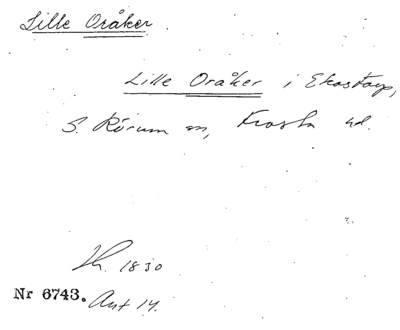 Lille Oråker
Lille Oråker i Ekastorp,
S. Rörum sn, Frosta hd.
Lh. 1830
Nr 6743. Ant 14.